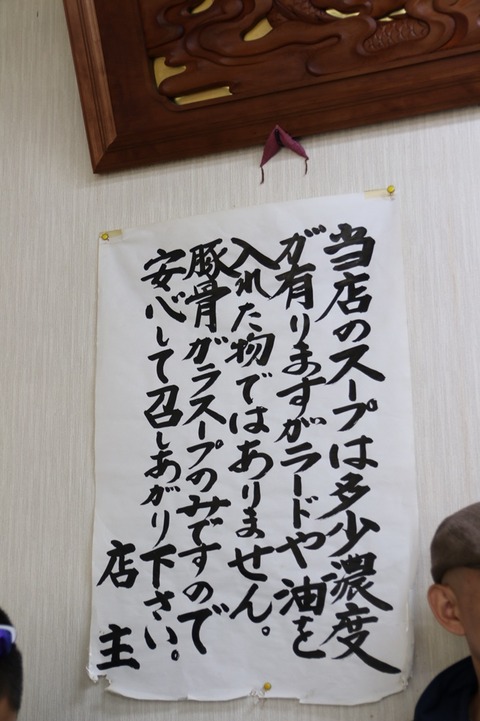 当店のスープは多少濃度
が有りますがラードや油を
入れた物ではありません。
豚骨ガラスープのみですので
安心して召しあがり下さい。
店主